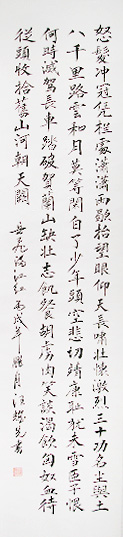 怒髮冲冠凭栏處潇潇雨歇抬望眼仰天長嘯壯懷激烈三十功名尘與土
八千里路雲和月莫等閒白了少年頭空悲切靖康耻犹未雪臣子恨
何時滅駕長車踏破賀蘭山缺壯志飢餐胡虜肉笑談渴飲匈奴血待
從頭收拾舊山河朝天闕 岳飛滿江紅 丙戌年臘月 先書